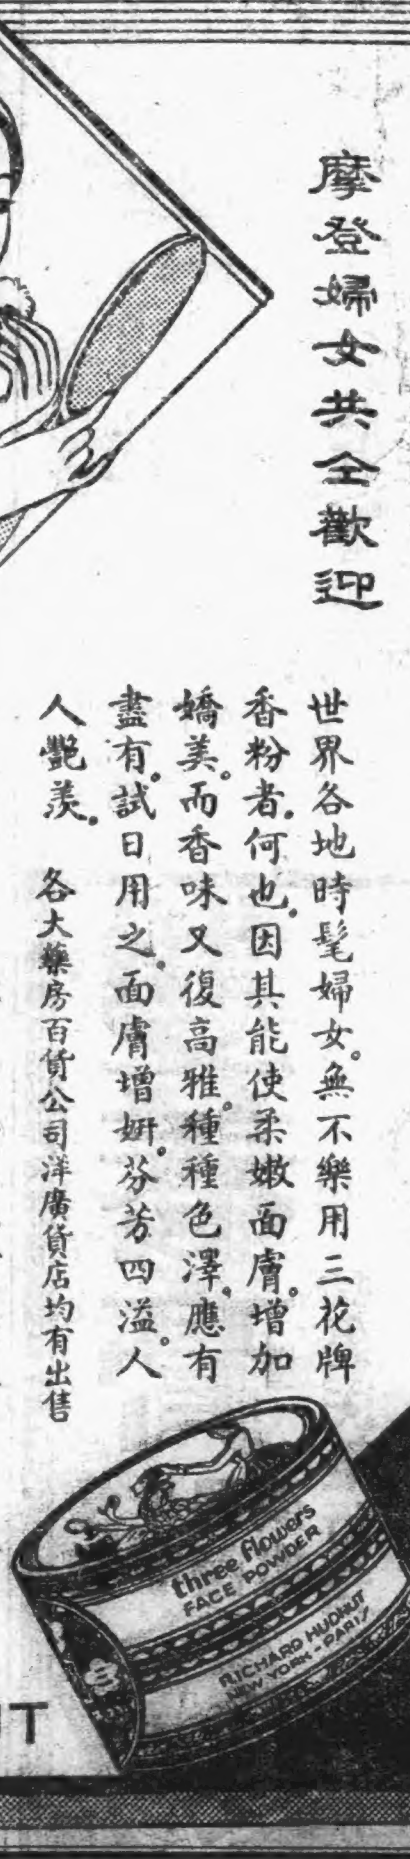 摩登婦女共仝歡迎
世界各地時髦婦女。無不樂用三花牌
香粉者。何也。因其能使柔嫩面膚。增加
嬌美。而香味又復高雅。種種色澤。應有
盡有。試日用之。面膚增妍。芬芳四溢。人
人艷羨。
各大藥房百貨公司洋廣貨店均有出售
three flowers
FACE POWDER
RICHARD HUDNUT
NEW YORK - PARIS